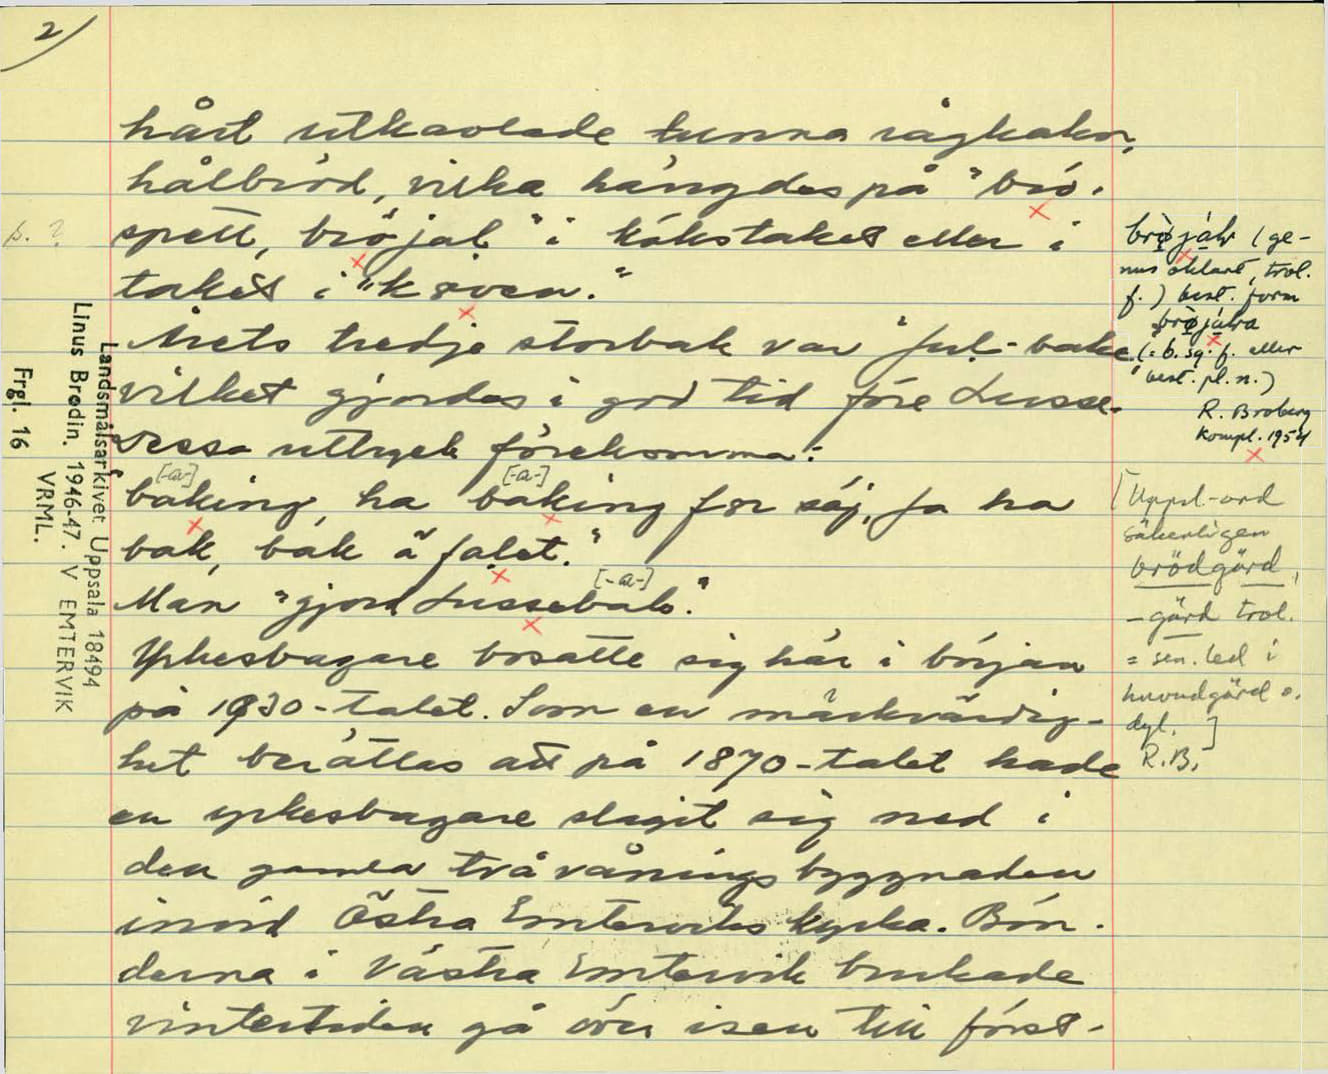 2)
hårt utkavlade tunna rågkakor,
hålbröd, vilka hängdes på "brö-
spett, bröjal" i kökstaket eller i
taket i "køven."
Årets tredje storbak var "jul-bake,
vilket gjordes i god tid före Lusse-
Dessa uttryck förekomma:
[-a-] [-a-]
baking, ha baking før säj, ja ha
bak, bak å jalet."
[-a-]
Man "gjord Lussebak".
Yrkesbagare bosatte sig här i början
på 1930-talet. Som en märkvärdig-
het berättas att på 1870-talet hade
en yrkesbagare slagit sig ned i
den gamla tvåvåningsbyggnaden
invid Östra Emterviks kyrka. Bön-
derna i Västra Emtervik brukade
vintertiden gå över isen till först-
s. ?
brøjálr (ge-
nus oklart, trol.
f.) best. form
brøjálra
(= b. sg. f. eller
best. pl. n.)
R. Broberg
kompl. 1954
[Uppsl.-ord
säkerligen
brödgärd,
-gärd trol.
= sen. led i
huvudgärd o.
dyl. ]
R.B.
Landsmålsarkivet Uppsala 18494
Linus Brodin. 1946-47. V EMTERVIK
VRML.
Frgl. 16